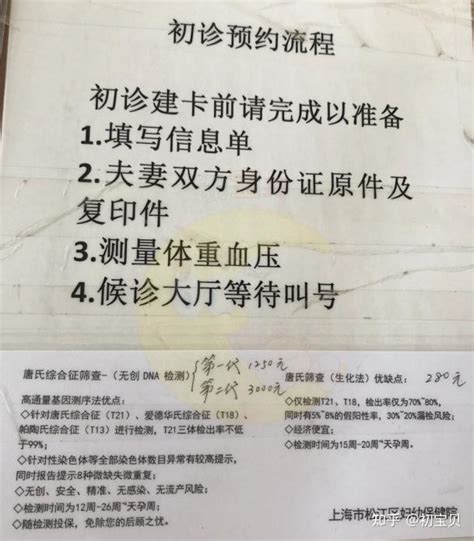 初诊预约流程
初诊建卡前请完成以准备
1.填写信息单
2.夫妻双方身份证原件及
复印件
3.测量体重血压
4.候诊大厅等待叫号
唐氏综合征筛查-（无创DNA检测）
第一代 1250元
第二代 3000元
高通量基因测序法优点：
◇针对唐氏综合征（T21）、爱德华氏综合征（T18）、
帕陶氏综合征（T13）进行检测，T21三体检出率不低
于99%；
◇针对性染色体等全部染色体数目异常有较高提示，
同时报告提示8种微缺失微重复；
◇无创、安全、精准、无感染、无流产风险；
◇检测时间为12周-26周⁺天孕周。
◇随检测投保，免除您的后顾之忧。
唐氏筛查（生化法）优缺点： 280元
◇仅检测T21、T18，检出率仅为70%~80%，
同时有5%~8%的假阳性率，30%~20%漏检风险；
◇经济便宜；
◇检测时间为15周-20周⁺天孕周。
上海市松江区妇幼保健院
知乎 @初宝贝